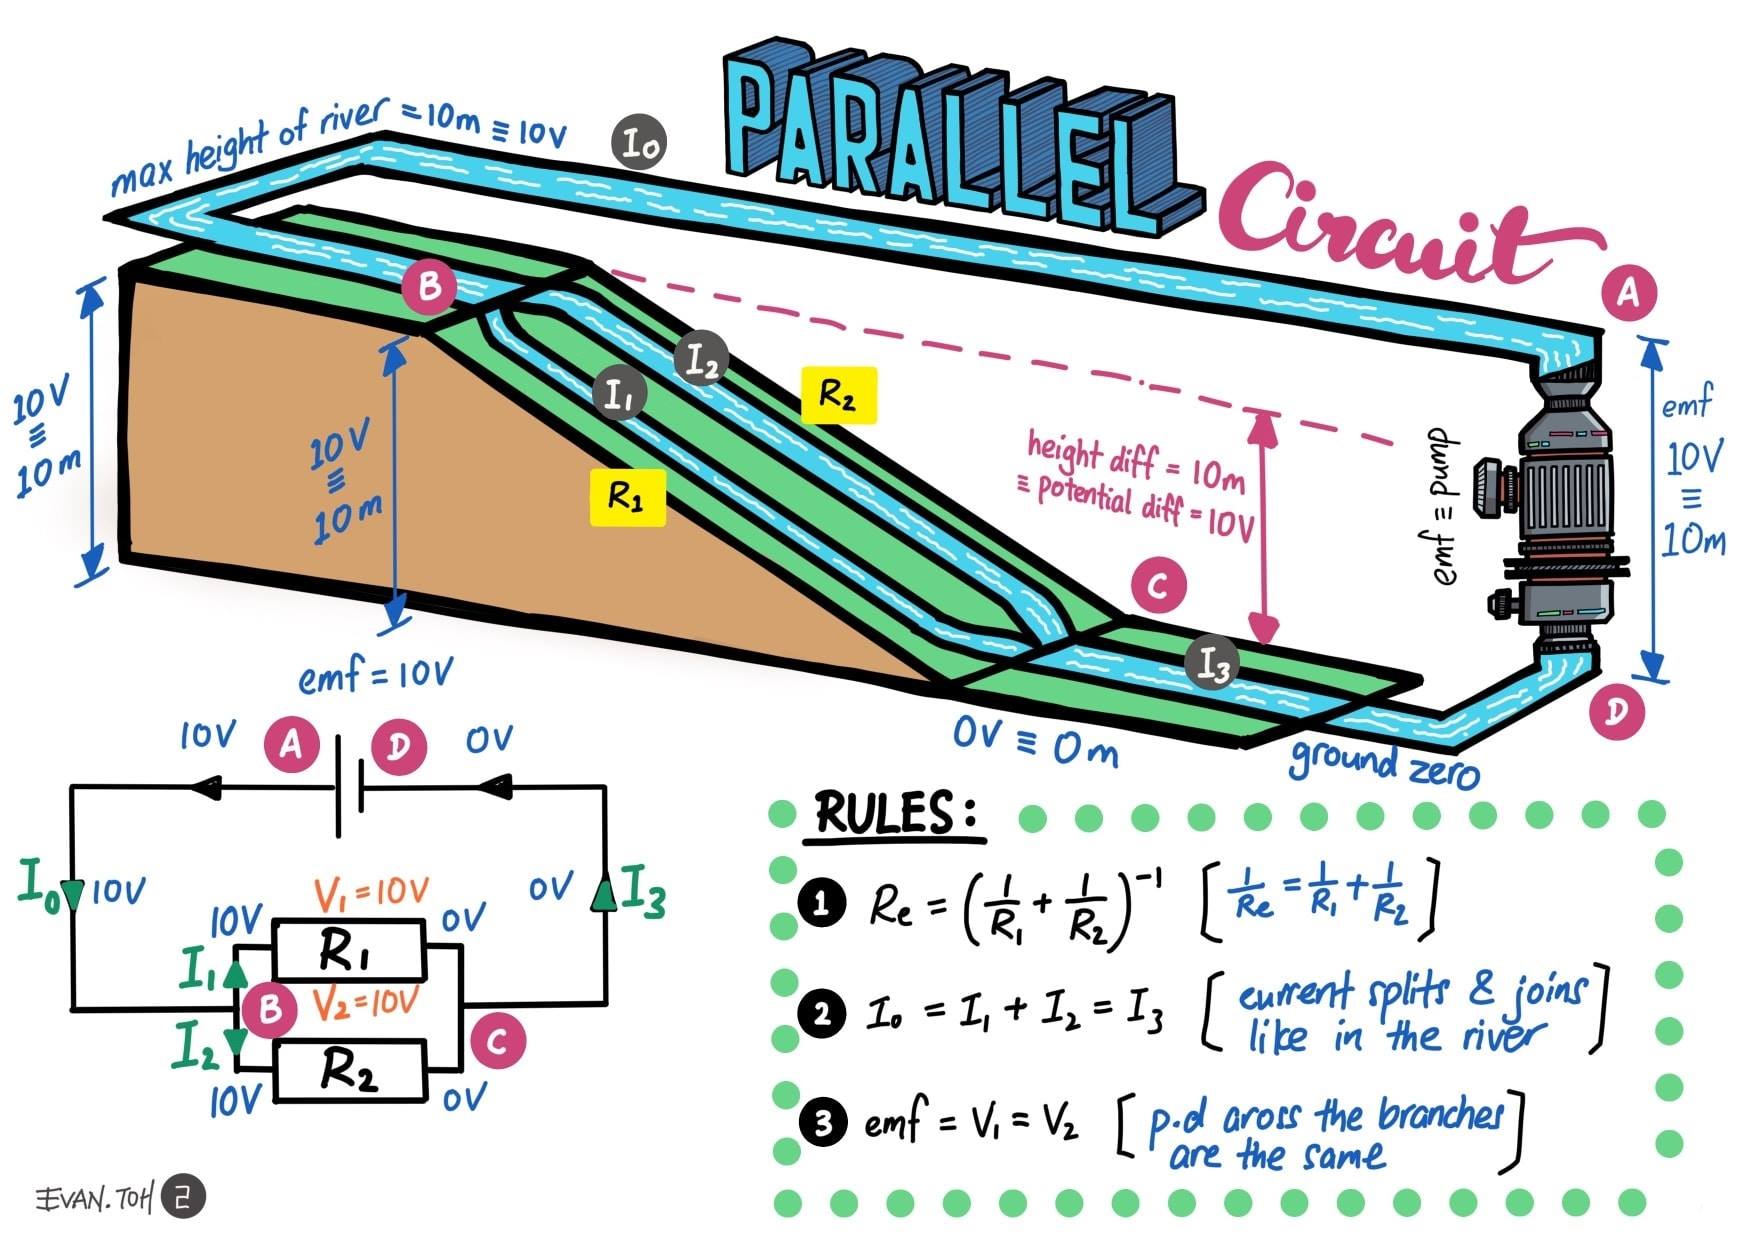 PARALLEL
Circuit
max height of river = 10m ≡ 10V
I₀
A
B
I₂
I₁
R₂
R₁
10V
≡
10m
10V
≡
10m
height diff = 10m
≡ potential diff = 10V
emf ≡ pump
emf
10V
≡
10m
C
I₃
D
0V ≡ 0m
ground zero
emf = 10V
10V
A
D
0V
I₀
10V
V₁ = 10V
0V
I₃
10V
R₁
0V
I₁
B
V₂ = 10V
C
I₂
R₂
10V
0V
RULES:
1 Re = (1/R₁ + 1/R₂)⁻¹ [1/Re = 1/R₁ + 1/R₂]
2 I₀ = I₁ + I₂ = I₃ [current splits & joins
like in the river]
3 emf = V₁ = V₂ [p.d aross the branches
are the same]
EVAN.TOH 2